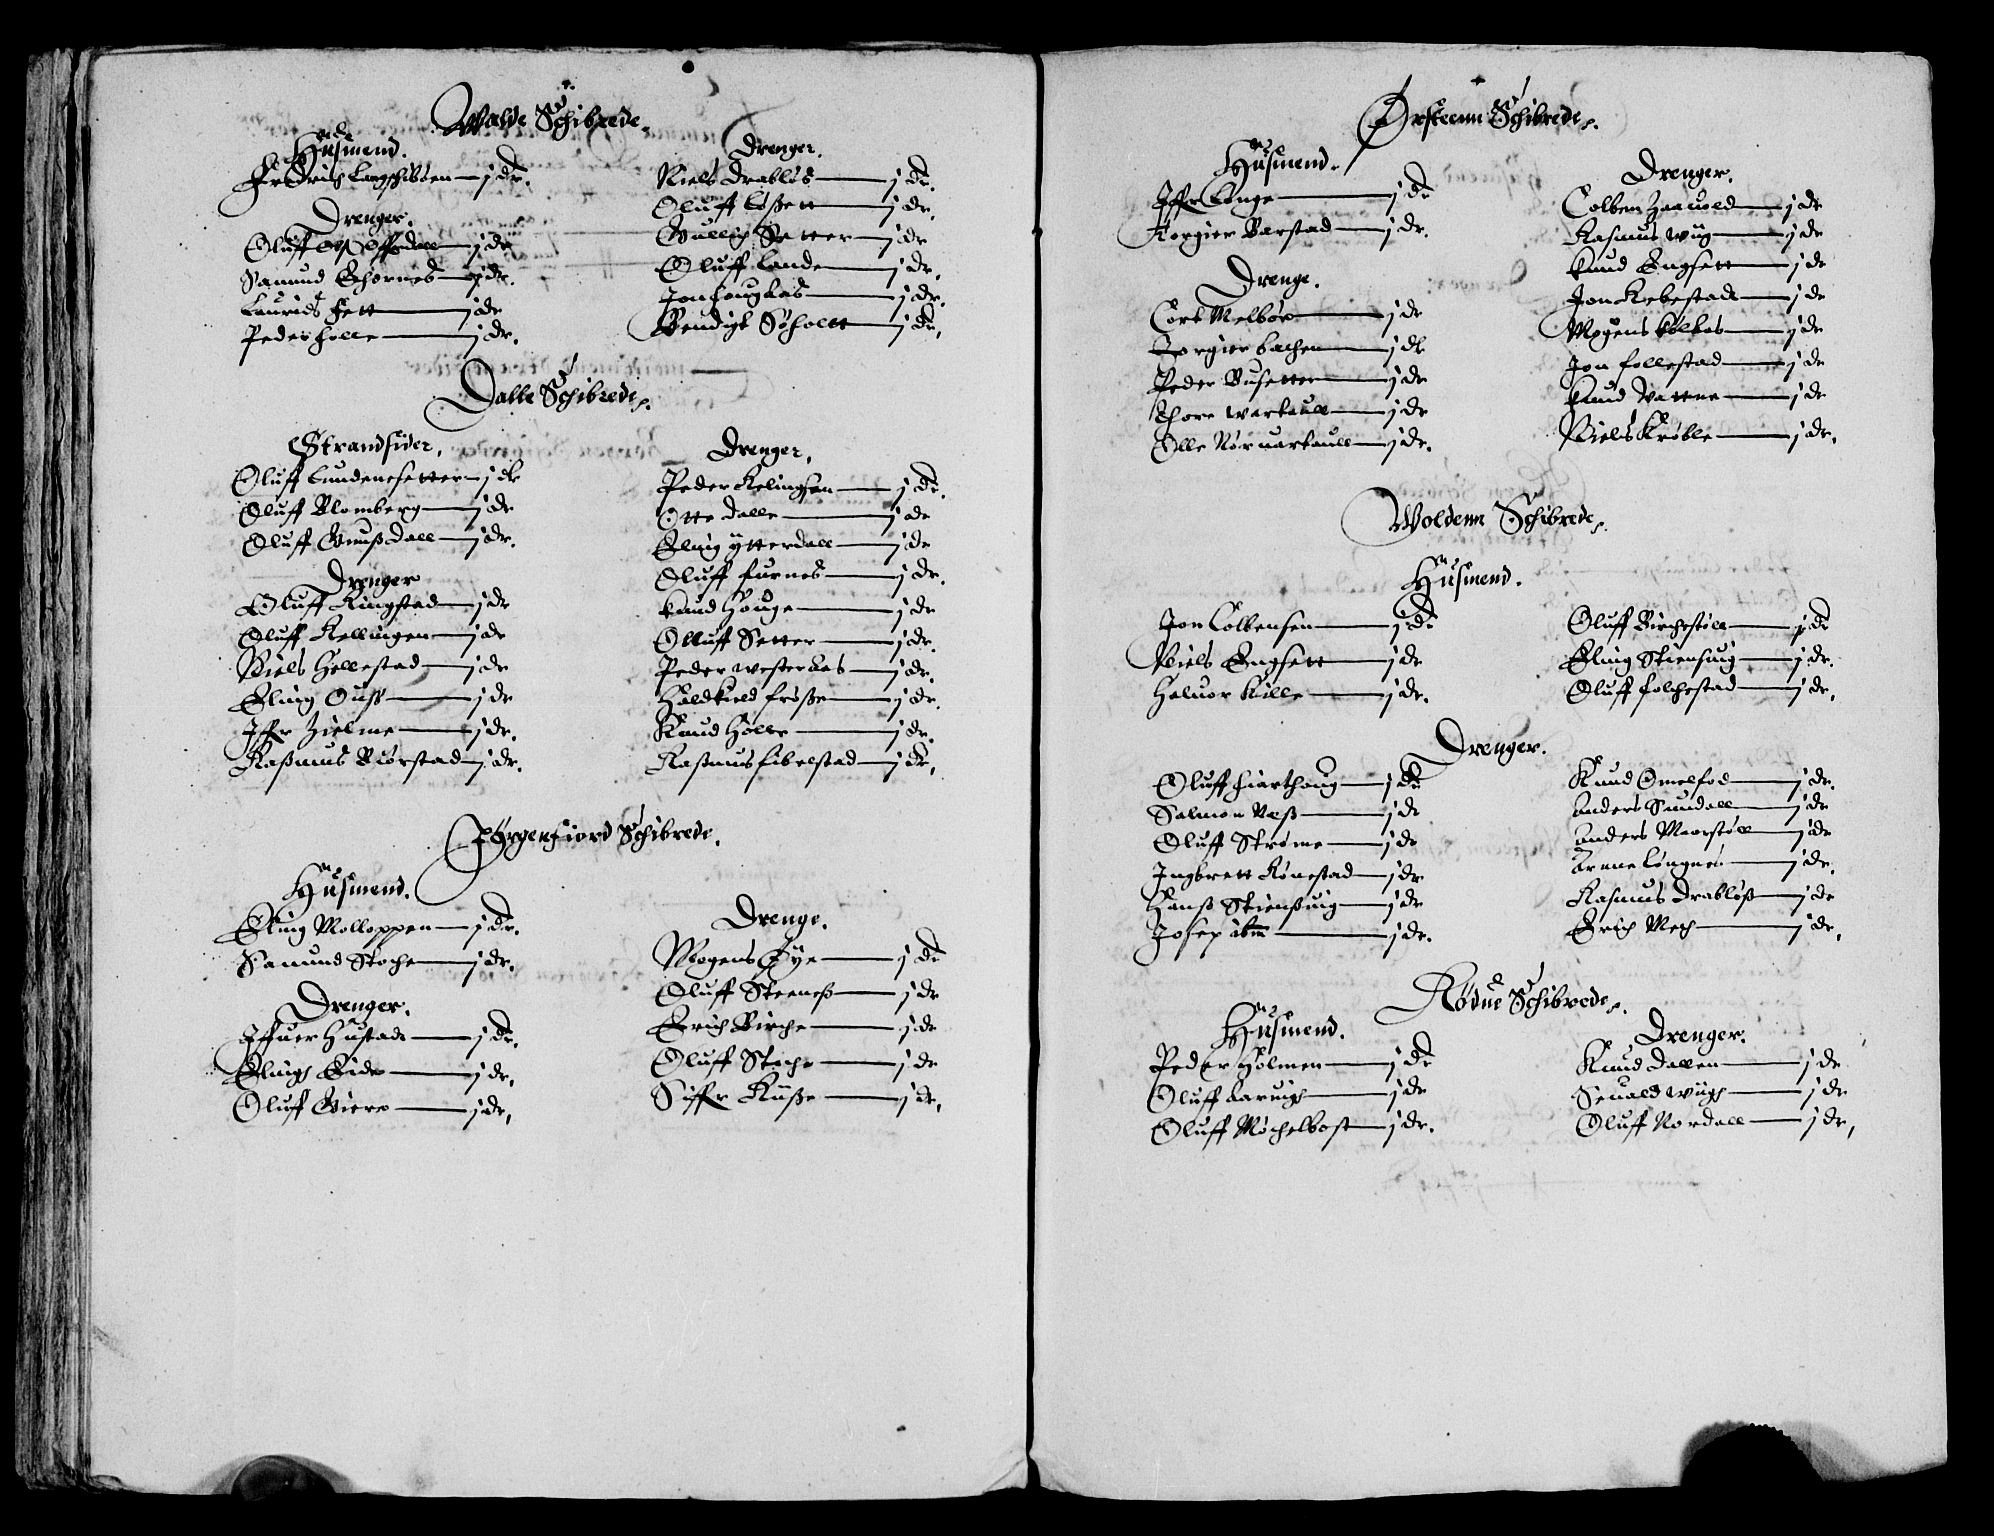 Walde Schibrede.
Husmend.
Fredrich Langschiböen — j dr.
Drenger.
Oluff Offerdall — j dr
Samund Thornes — j dr.
Laurids Fett — j dr
Peder holle — j dr.
Drenger.
Niels Drabløs — j dr.
Oluff Løßett — j dr.
Gullich Setter — j dr
Oluff Lande — j dr.
Jon houglas — j dr.
Bendigt Søholtt — j dr.
Dalle Schibrede.
Strandsider.
Oluff Lundenesetter — j dr
Oluff Blomberg — j dr
Oluff Gnußdall — j dr.
Drenger
Oluff Ringstad — j dr
Oluff Kellingen — j dr
Niels Hellestad — j dr
Elling Ouff — j dr
Iffr Hielme — j dr.
Raßmus Biørstad — j dr.
Drenger.
Peder Kelingsen — j dr.
Otte Dalle — j dr
Eling Ytterdall — j dr
Oluff furnes — j dr.
knud Houge — j dr
Olluff Setter — j dr.
Peder westeraas — j dr.
Haldkield frøße — j dr.
Knud Holle — j dr.
Raßmus fibelstad — j dr.
Jørgenfiord Schibrede.
Husmend.
Eling Molloppen — j dr.
Samund Stoche — j dr.
Drenger.
Iffuer Hustad — j dr.
Elingh Eide — j dr.
Oluff Giere — j dr.
Drenge.
Mogens Øye — j dr
Oluff Steeneß — j dr
Erich Birche — j dr
Oluff Stoche — j dr
Siffr Kuße — j dr.
Ørsteenn Schibrede.
Husmend.
Iffr Longe — j dr
Torgier Barstad — j dr.
Drenge.
Cort Melbøe — j dr
Torgier bachen — j dr
Peder Busetter — j dr
Thore wartaull — j dr
Olle Nørvartaull — j dr.
Drenger.
Colben Haavold — j dr
Rasmus wiig — j dr
knud Engsett — j dr
Jon Kebestad — j dr
Mogens kolaas — j dr
Jon follestad — j dr
knud Vattne — j dr
Niels Krøble — j dr.
Woldenn Schibrede.
Husmend.
Jon Colbensen — j dr
Niels Engsett — j dr
Haluor kille — j dr.
Oluff Birchestøll — j dr
Eling Stiensuig — j dr.
Oluff folchestad — j dr.
Drenger.
Oluff hiarthoug — j dr
Salmon Næß — j dr
Oluff Strøme — j dr
Ingbrett Rønestad — j dr
Hanß Stienßuig — j dr
Josep ibm — j dr.
Knud Omelfod — j dr.
anders Sundall — j dr
anders Maarstøll — j dr
Arnne Løngnes — j dr.
Rasmus Drabløß — j dr
Erich Mech — j dr.
Rødue Schibrede.
Husmend.
Peder Holmen — j dr
Oluff aaruigh — j dr
Oluff Møchelbost — j dr.
Drenger.
Knud Dallen — j dr
Seuald wiigh — j dr
Oluff Nordall — j dr.